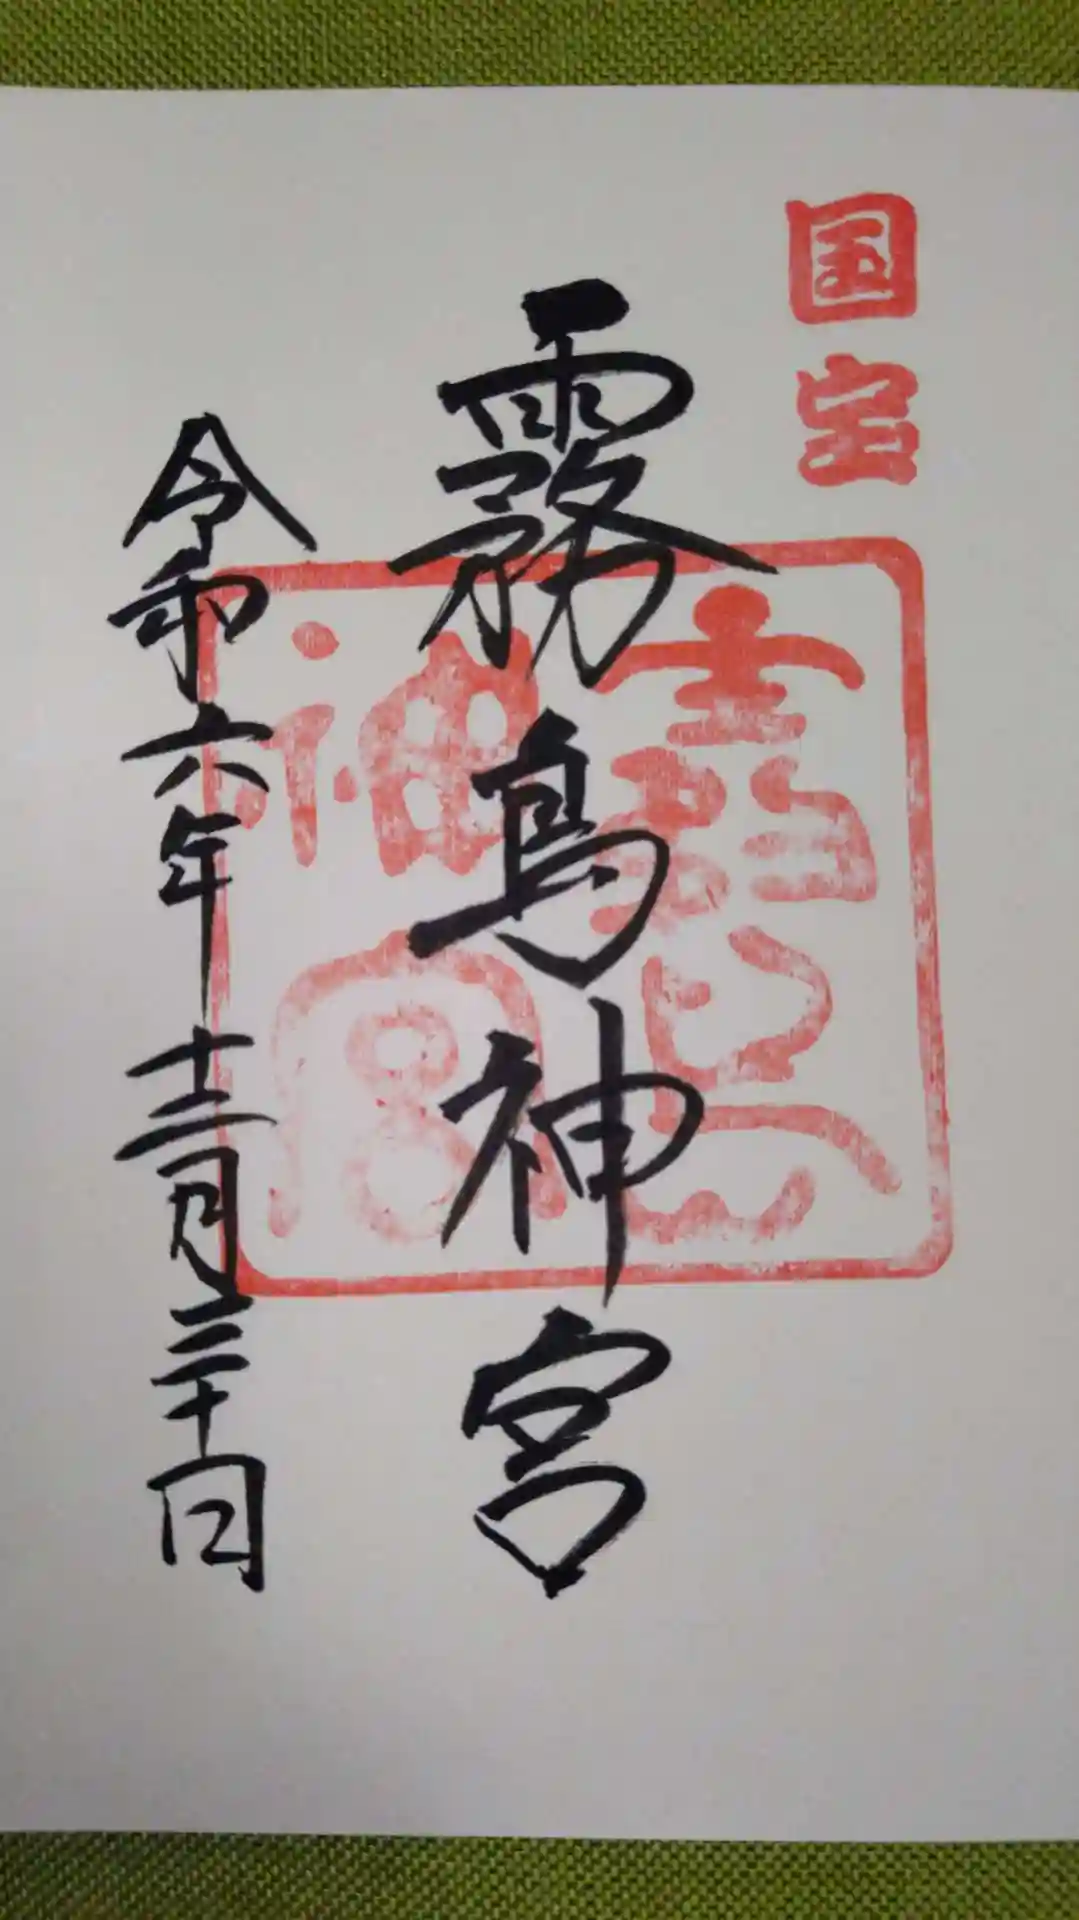 国宝
霧島神宮
霧島神宮
令和六年十二月三十日